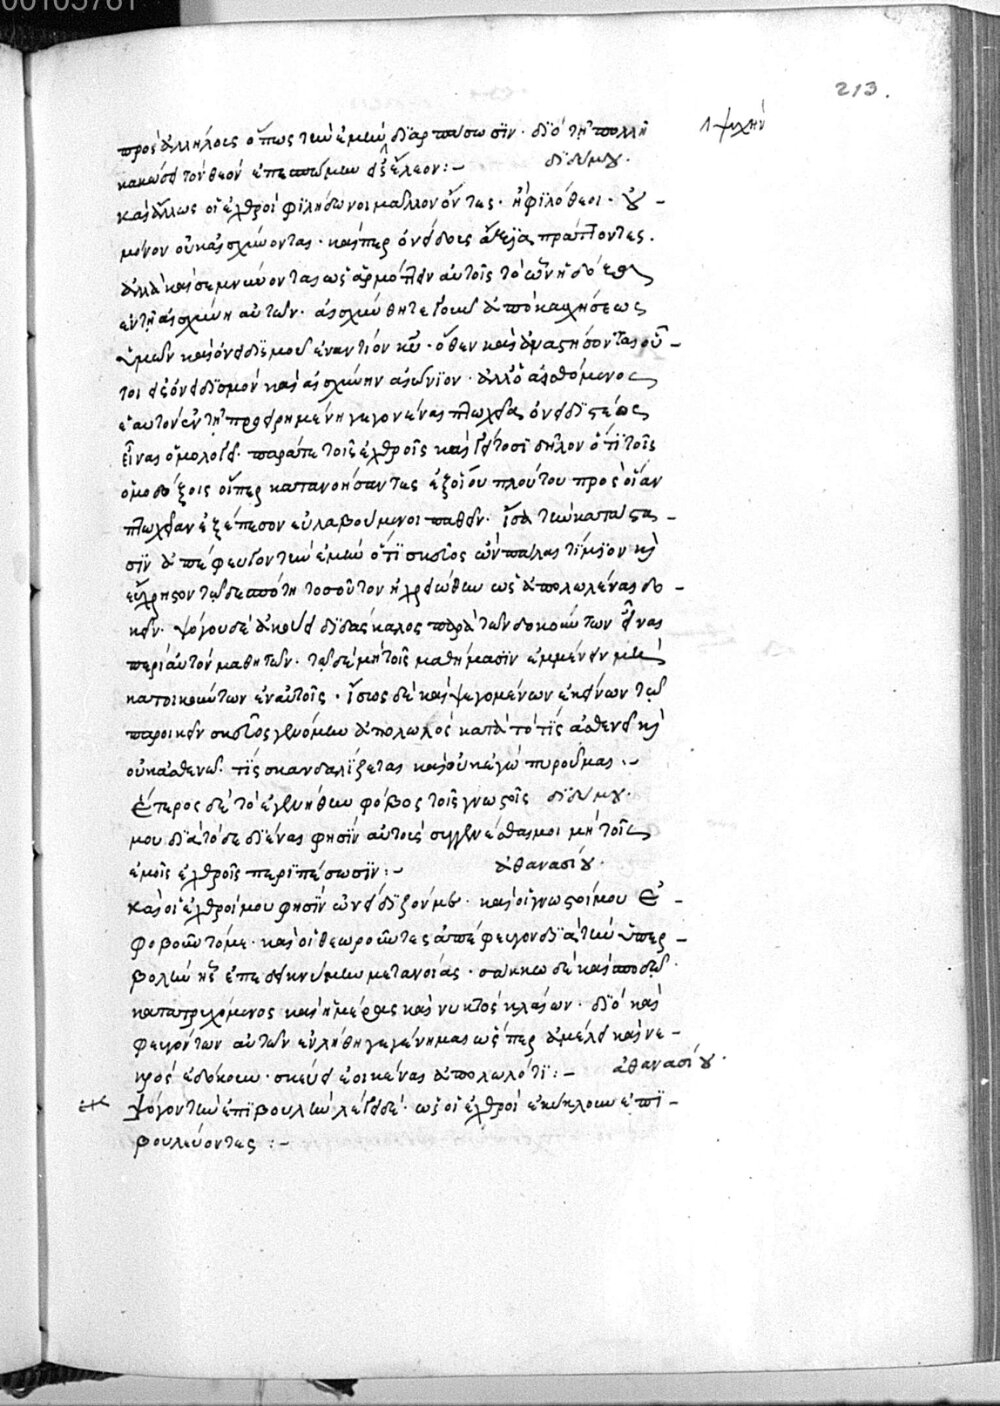 213.
πρὸς ἀλλήλους ὅπως τὴν ἐμὴν διαρπάσωσιν· διὸ τῇ πολλῇ
ψυχήν
κακώσει τὸν θεὸν ἐπεσπώμην εἰς ἔλεον:–
διδύμου.
καὶ ἄλλως οἱ ἐχθροὶ φιλήδονοι μᾶλλον ὄντες· ἢ φιλόθεοι· οὐ –
μόνον οὐκ αἰσχύνονται· καίπερ ὀνείδους ἄξια πράττοντες.
ἀλλὰ καὶ σεμνύνονται ὡς ἁρμόττειν αὐτοῖς τὸ ὧν ἡ δόξα
ἐν τῇ αἰσχύνῃ αὐτῶν· αἰσχύνθητε γοῦν ἀπὸ καυχήσεως
ὑμῶν καὶ ὀνειδισμοῦ ἐναντίον κυ· ὅθεν καὶ ἀναστήσονται οὗ –
τοι εἰς ὀνειδισμὸν καὶ αἰσχύνην αἰώνιον· ἀλλ' ὁ αἰσθόμενος
ἑαυτὸν ἐν τῇ προειρημένῃ γεγονέναι πτωχείᾳ
εἶναι ὁμολογεῖ· παρά τε τοῖς ἐχθροῖς καὶ γείτοσι δηλονότι τοῖς
ὁμοδόξοις οἵπερ κατανοήσαντες ἐξ οἵου πλούτου πρὸς οἵαν
πτωχείαν ἐξέπεσον εὐλαβούμενοι παθεῖν· ἶσα τὴν κατάστα –
σιν ἀπέφευγον τὴν ἐμὴν ὅτι σκεῦος ὢν πάλαι τίμιον καὶ
εὔχρηστον τῷ δεσπότῃ τοσοῦτον ἠχρειώθην ὡς ἀπολωλέναι δο –
κεῖν· ψόγους δὲ ἀκούει διδάσκαλος παρὰ τῶν δοκούντων εἶναι
περὶ αὐτὸν μαθητῶν· τῷ δὲ μὴ τοῖς μαθήμασιν ἐμμένειν
κατοικούντων ἐν αὐτοῖς· ἴσως δὲ καὶ ψεγομένων ἐκείνων τῷ
παροικεῖν σκεῦος γενόμενον ἀπολωλὸς κατὰ τὸ τίς ἀσθενεῖ καὶ
οὐκ ἀσθενῶ· τίς σκανδαλίζεται καὶ οὐκ ἐγὼ πυροῦμαι.–
διδύμου·
ἕτερος δὲ τὸ ἐγενήθην φόβος τοῖς γνωστοῖς
μου διὰ τὸ δεδιέναι φησὶν αὐτοὺς συγγενέσθαι μοι μὴ τοῖς
ἐμοῖς ἐχθροῖς περιπέσωσιν:–
ἀθανασίου·
καὶ οἱ ἐχθροί μου φησὶν ὠνείδιζόν με· καὶ οἱ γνωστοί μου ἐ –
φοβοῦντό με· καὶ οἱ θεωροῦντες ἀπέφευγον διὰ τὴν ὑπερ –
βολὴν ἧς ἐπεδεικνύμην μετανοίας· σάκκῳ δὲ καὶ σποδῷ·
κατατρυχόμενος καὶ ἡμέρας καὶ νυκτὸς κλαίων· διὸ καὶ
φευγόντων αὐτῶν ἐν λήθῃ γεγένημαι ὥσπερ ἀμέλει καὶ νε –
κρὸς ἐδόκουν· σκεύει ἐοικέναι ἀπολωλότι:–
ἀθανασίου·
ψόγον τὴν ἐπιβουλὴν λέγει δέ· ὡς οἱ ἐχθροὶ ἐκύκλουν ἐπι –
βουλεύοντες:–